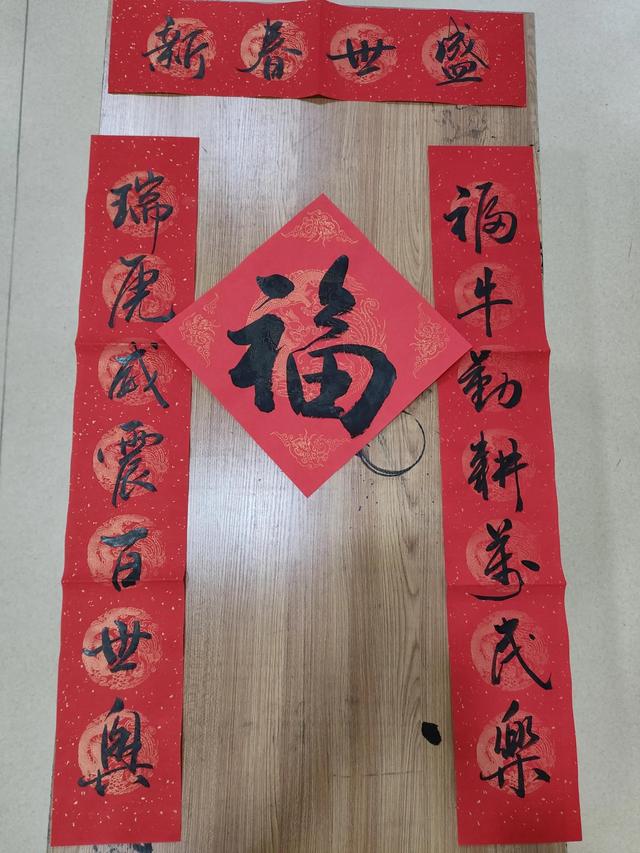 新春世盛
福牛勤耕萬民樂
瑞虎威震百世興
福